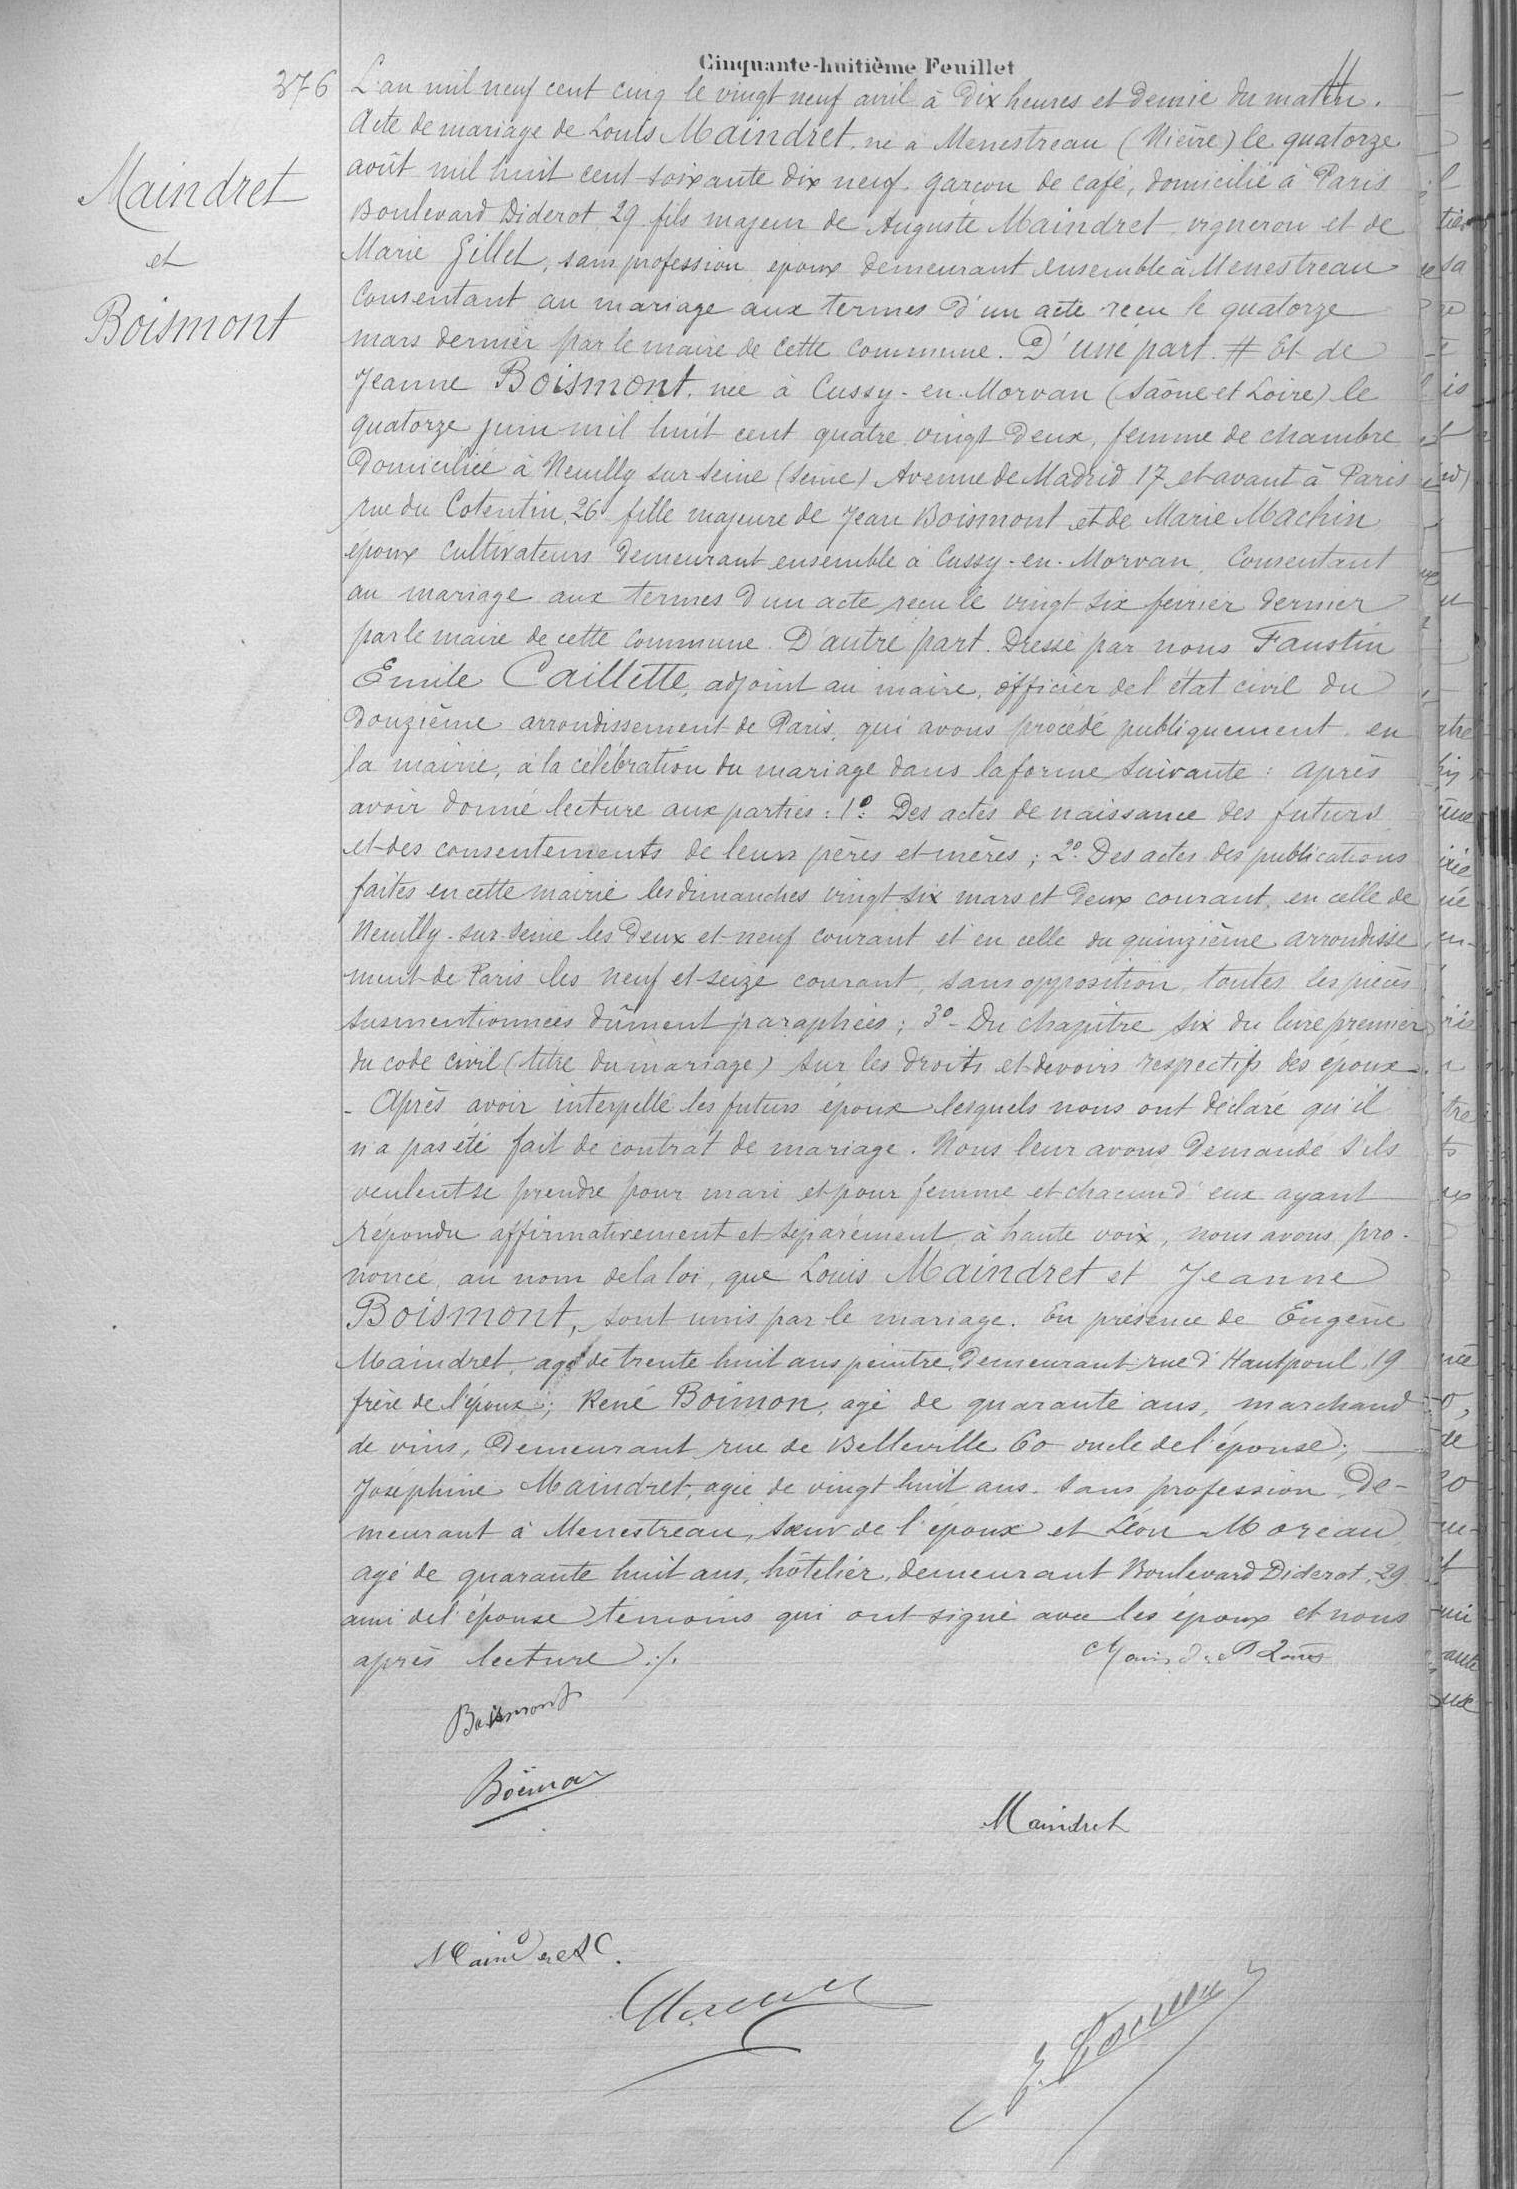 Cinquante-huitième Feuillet
376
Maindret
et
Boismont
L'an mil neuf cent cinq le vingt neuf avril à dix heures et demie du matin.
Acte de mariage de Louis Maindret, né à Menestreau (Nièvre) le quatorze
août mil huit cent soixante dix neuf, garçon de café, domicilié à Paris
Boulevard Diderot 29 fils majeur de Auguste Maindret vigneron et de
Marie Gillet, sans profession époux demeurant ensemble à Menestreau
Consentant au mariage aux termes d'un acte reçu le quatorze
mars dernier par le maire de cette commune. D'une part. # Et de
Jeanne Boismont, née à Cussy-en-Morvan (Saône et Loire) le
quatorze juin mil huit cent quatre vingt deux, femme de chambre
Domiciliée à Neuilly sur Seine (Seine) Avenue de Madrid 17 et avant à Paris
rue du Cotentin, 26 fille majeure de Jean Boismont et de Marie Machin
époux cultivateurs demeurant ensemble à Cussy-en-Morvan, Consentant
au mariage aux termes d'un acte reçu le vingt six février dernier
par le maire de cette commune. D'autre part. Dressé par nous Faustin
Emile Caillette, adjoint au maire, officier de l'état civil du
Douzième arrondissement de Paris, qui avons procédé publiquement en
la mairie, à la célébration du mariage dans la forme suivante : après
avoir donné lecture aux parties : 1º: Des actes de naissance des futurs
et des consentements de leurs pères et mères ; 2º: Des actes des publications
faites en cette mairie les dimanches vingt six mars et deux courant, en celle de
Neuilly-sur-Seine les deux et neuf courant et en celle du quinzième arrondisse
ment de Paris les neuf et seize courant, sans opposition, toutes les pièces
susmentionnées dûment paraphées ; 3º- Du chapitre six du livre premier
du code civil (titre du mariage) sur les droits et devoirs respectifs des époux.
- Après avoir interpellé les futurs époux lesquels nous ont déclaré qu'il
n'a pas été fait de contrat de mariage. Nous leur avons demandé s'ils
veulent se prendre pour mari et pour femme et chacun d'eux ayant
répondu affirmativement et séparément à haute voix, nous avons pro-
noncé au nom de la loi, que Louis Maindret et Jeanne
Boismont, sont unis par le mariage. En présence de Eugène
Maindret, agé de trente huit ans peintre, demeurant rue d'Hautpoul, 19
frère de l'époux ; René Boimon, agé de quarante ans, marchand
de vins, demeurant rue de Belleville 60 oncle de l'épouse ;
Joséphine Maindret, agée de vingt huit ans. sans profession, de-
meurant à Menestreau, sœur de l'époux et Léon Moreau
agé de quarante huit ans, hôtelier, demeurant Boulevard Diderot, 29
ami de l'épouse témoins qui ont signé avec les époux et nous
après lecture ./.
Maindret Louis
Boismont
Boimon
Maindret
Maindret